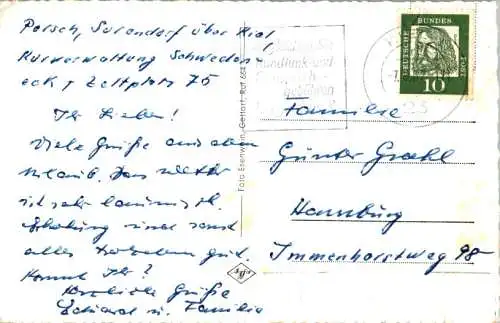 Porsch, Surendorf über Kiel
Kurverwaltung Schweden
eck, Zeltplatz 75
Ihr Lieben!
Viele Grüße aus dem
Urlaub. Das Wetter
ist sehr launisch.
Erholung und sonst
alles trotzdem gut.
Kommt Ihr?
Herzliche Grüße
Eduard u. Familie
Foto Eisenwein, Gettorf, Ruf 664
Agfa
Rundfunk- und
gebühren
DEUTSCHE
BUNDES
POST
10
Familie
Günter Grahl
Hamburg
Immenhorstweg 98